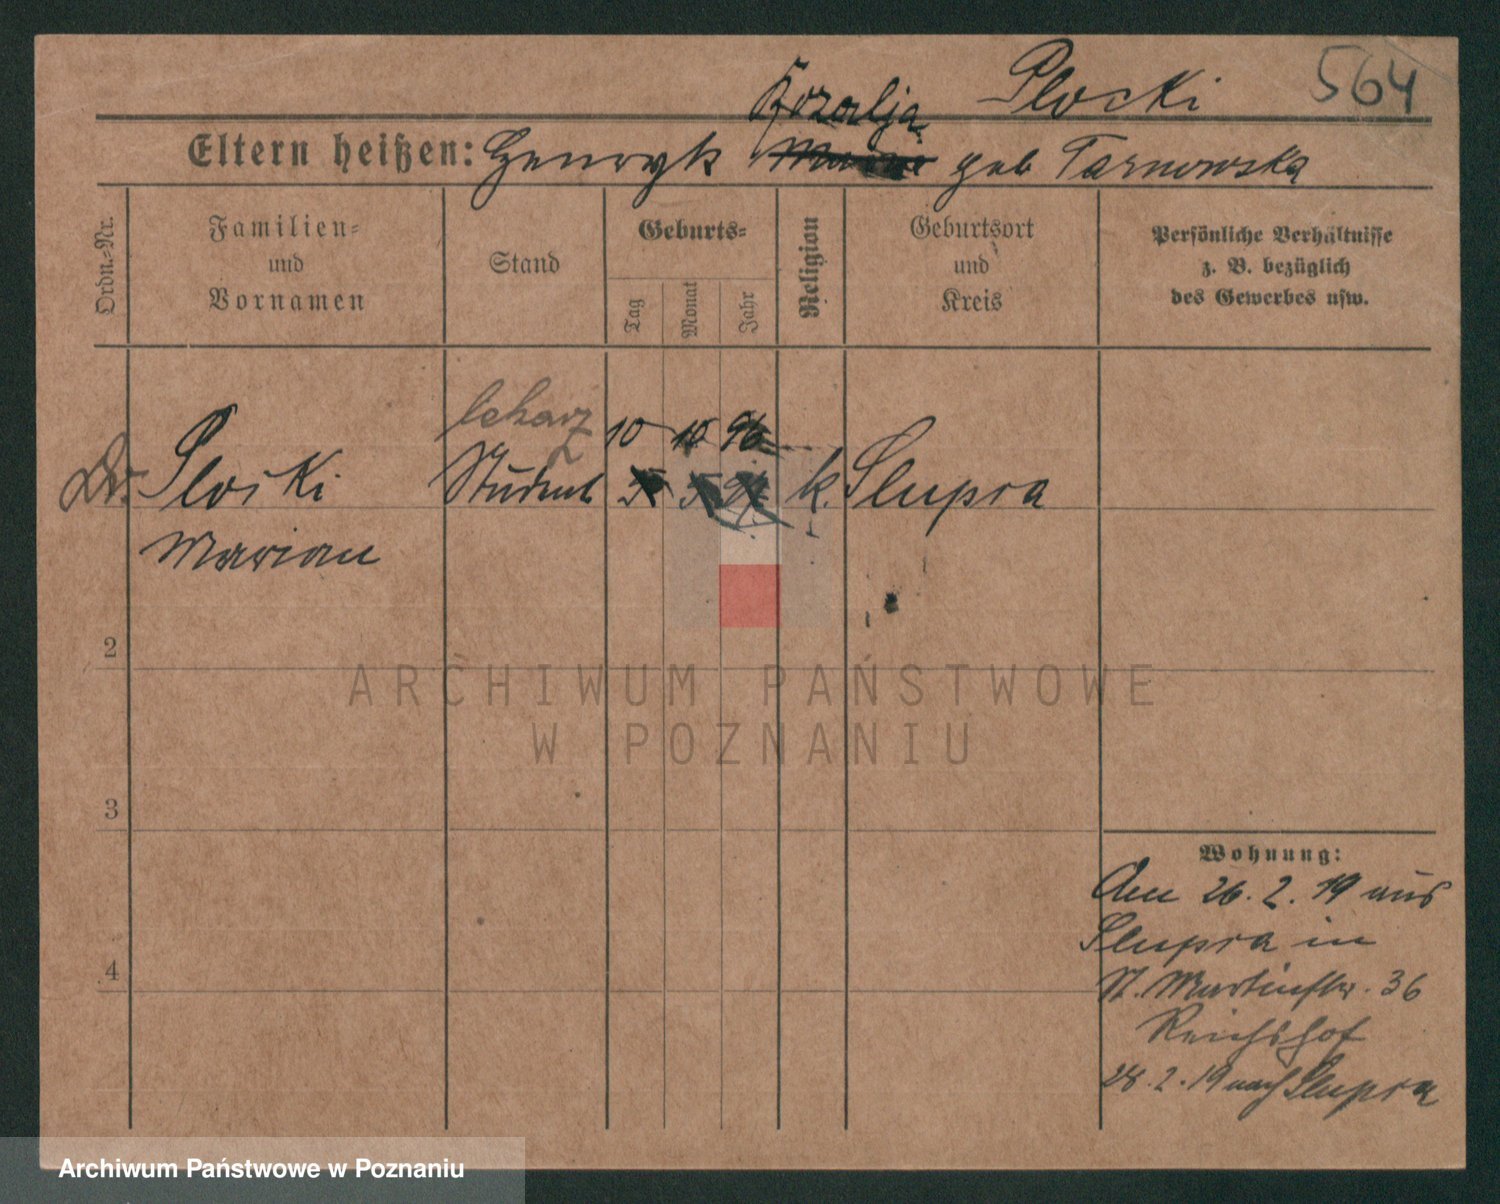 Plocki 564
Rozalja
Eltern heißen: Henryk geb Tarnowska
Ordn.-Nr.
Familien-
und
Vornamen
Stand
Geburts-
Tag
Monat
Jahr
Religion
Geburtsort
und
Kreis
Persönliche Verhältnisse
z. B. bezüglich
des Gewerbes usw.
lekarz 10 10 96
Dr. Plocki Student k. Slupia
Marian
2
ARCHIWUM PAŃSTWOWE
W POZNANIU
3
Wohnung:
Am 26.2.19 aus
Slupia in
St. Martinstr. 36
Reichshof
28.2.19 nach Slupia
4
Archiwum Państwowe w Poznaniu